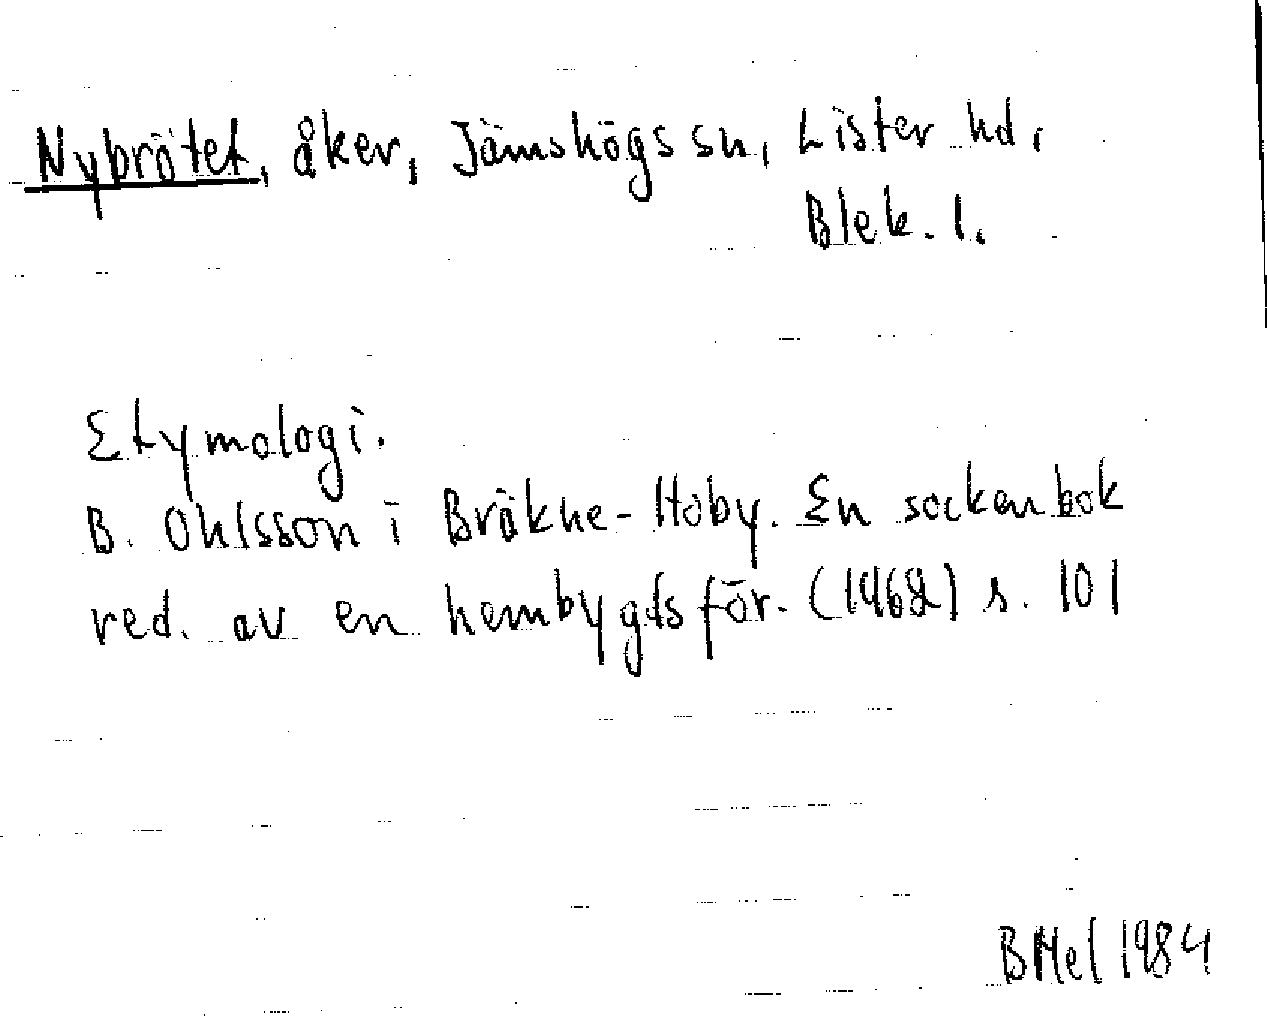 Nybrötet, åker, Jämshögs sn, Lister hd,
Blek. l.
Etymologi.
B. Ohlsson i Bräkne-Hoby. En sockenbok
red. av en hembygdsför. (1962) s. 101
BMel 1984